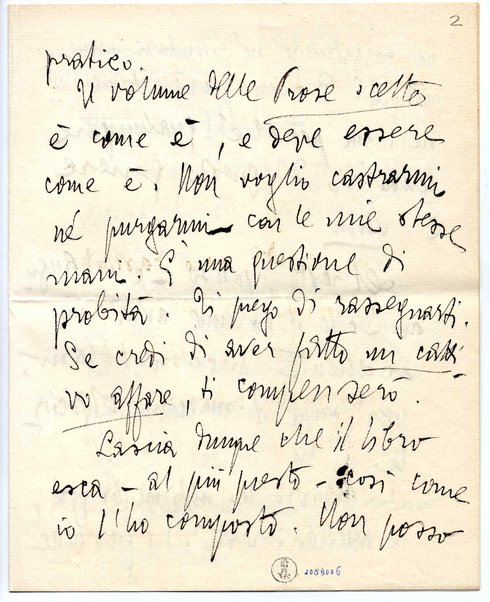 2
pratico.
Il volume delle Prose scelte
è come è, e deve essere
come è. Non voglio castrarmi
né purgarmi con le mie stesse
mani. È una questione di
probità. Ti prego di rassegnarti.
Se credi di aver fatto un catti
vo affare ti compenserò.
Lascia dunque che il libro
esca – al più presto – così come
io l'ho composto. Non posso
2059006